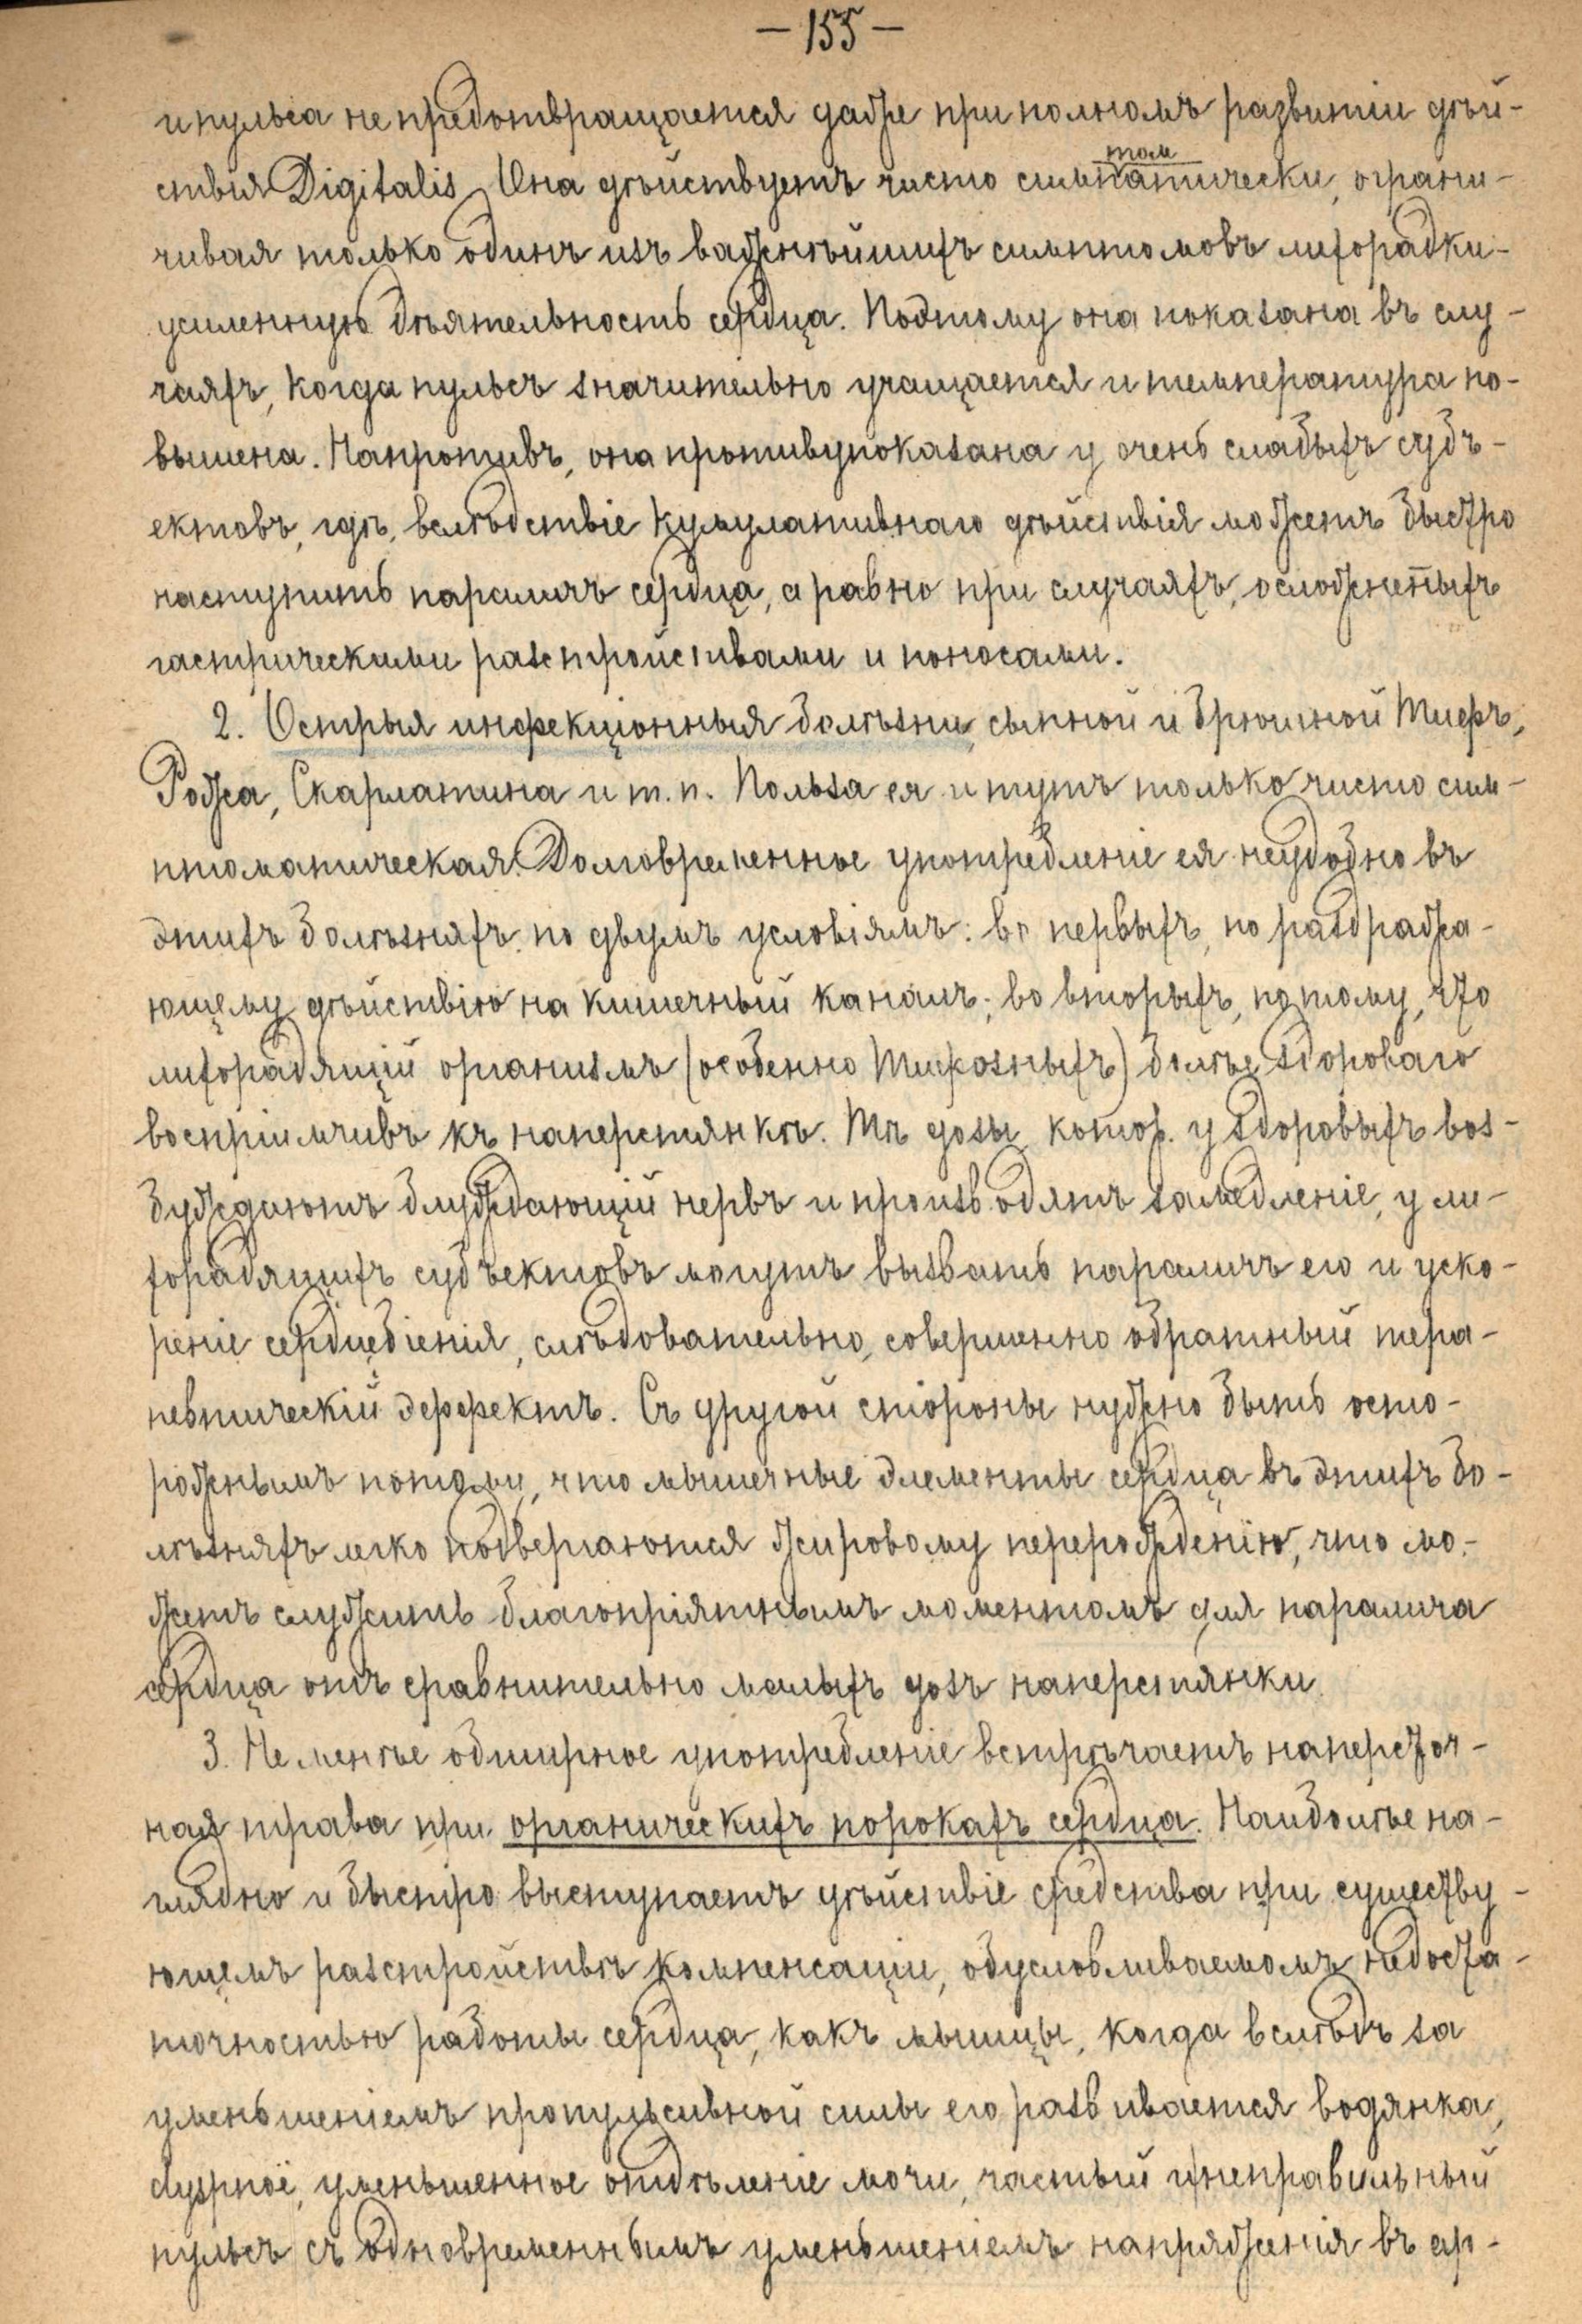 — 155 —
и пульса не предотвращается даже при полномъ развитіи дѣй-
ствія Digitalis. Она дѣйствуетъ чисто симптоматически, ограни-
чивая только одинъ изъ важнѣйшихъ симптомовъ лихорадки-
усиленную дѣятельность сердца. Поэтому она показана въ слу-
чаяхъ, когда пульсъ значительно учащается и температура по-
вышена. Напротивъ, она противупоказана у очень слабыхъ субъ-
ектовъ, гдѣ, вслѣдствіе кумулативнаго дѣйствія можетъ быстро
наступить параличъ сердца, а равно при случаяхъ, осложненныхъ
гастрическими разстройствами и поносами.
2. Острыя инфекціонныя болѣзни, сыпной и брюшной Тифъ,
Рожа, Скарлатина и т. п. Польза ея и тутъ только чисто сим-
птоматическая. Долговременное употребленіе ея неудобно въ
этихъ болѣзняхъ по двумъ условіямъ: во первыхъ, по раздража-
ющему дѣйствію на кишечный каналъ; во вторыхъ, потому, что
лихорадящій организмъ (особенно Тифозныхъ) болѣе здороваго
воспріимчивъ къ наперстянкѣ. Тѣ дозы, котор. у здоровыхъ воз-
буждаютъ блуждающій нервъ и производятъ замедленіе, у ли-
хорадящихъ субъектовъ могутъ вызвать параличъ его и уско-
реніе сердцебіенія, слѣдовательно, совершенно обратный тера-
певтическій эффектъ. Съ другой стороны нужно быть осто-
рожнымъ потому, что мышечные элементы сердца въ этихъ бо-
лѣзняхъ легко подвергаются жировому перерожденію, что мо-
жетъ служить благопріятнымъ моментомъ для паралича
сердца отъ сравнительно малыхъ дозъ наперстянки.
3. Не менѣе обширное употребленіе встрѣчаетъ наперсточ-
ная трава при органическихъ порокахъ сердца. Наиболѣе на-
глядно и быстро выступаетъ дѣйствіе средства при существу-
ющемъ разстройствѣ компенсаціи, обусловливаемомъ недоста-
точностью работы сердца, какъ мышцы, когда вслѣдъ за
уменьшеніемъ пропульсивной силы его развивается водянка,
dyspnoë, уменьшенное отдѣленіе мочи, частый и неправильный
пульсъ съ одновременнымъ уменьшеніемъ напряженія въ ар-